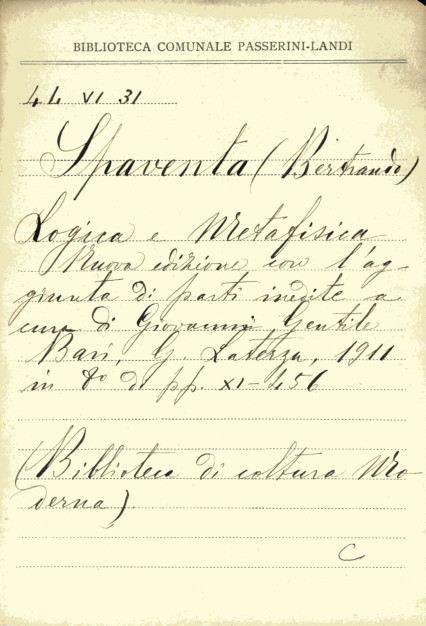 BIBLIOTECA COMUNALE PASSERINI-LANDI
4 L VI 31
Spaventa (Bertrando)
Logica e Metafisica
Nuova edizione con l'ag-
giunta di parti inedite a
cura di Giovanni Gentile
Bari, G. Laterza, 1911
in 8º di pp. XI-456
(Biblioteca di coltura Mo
derna).
C